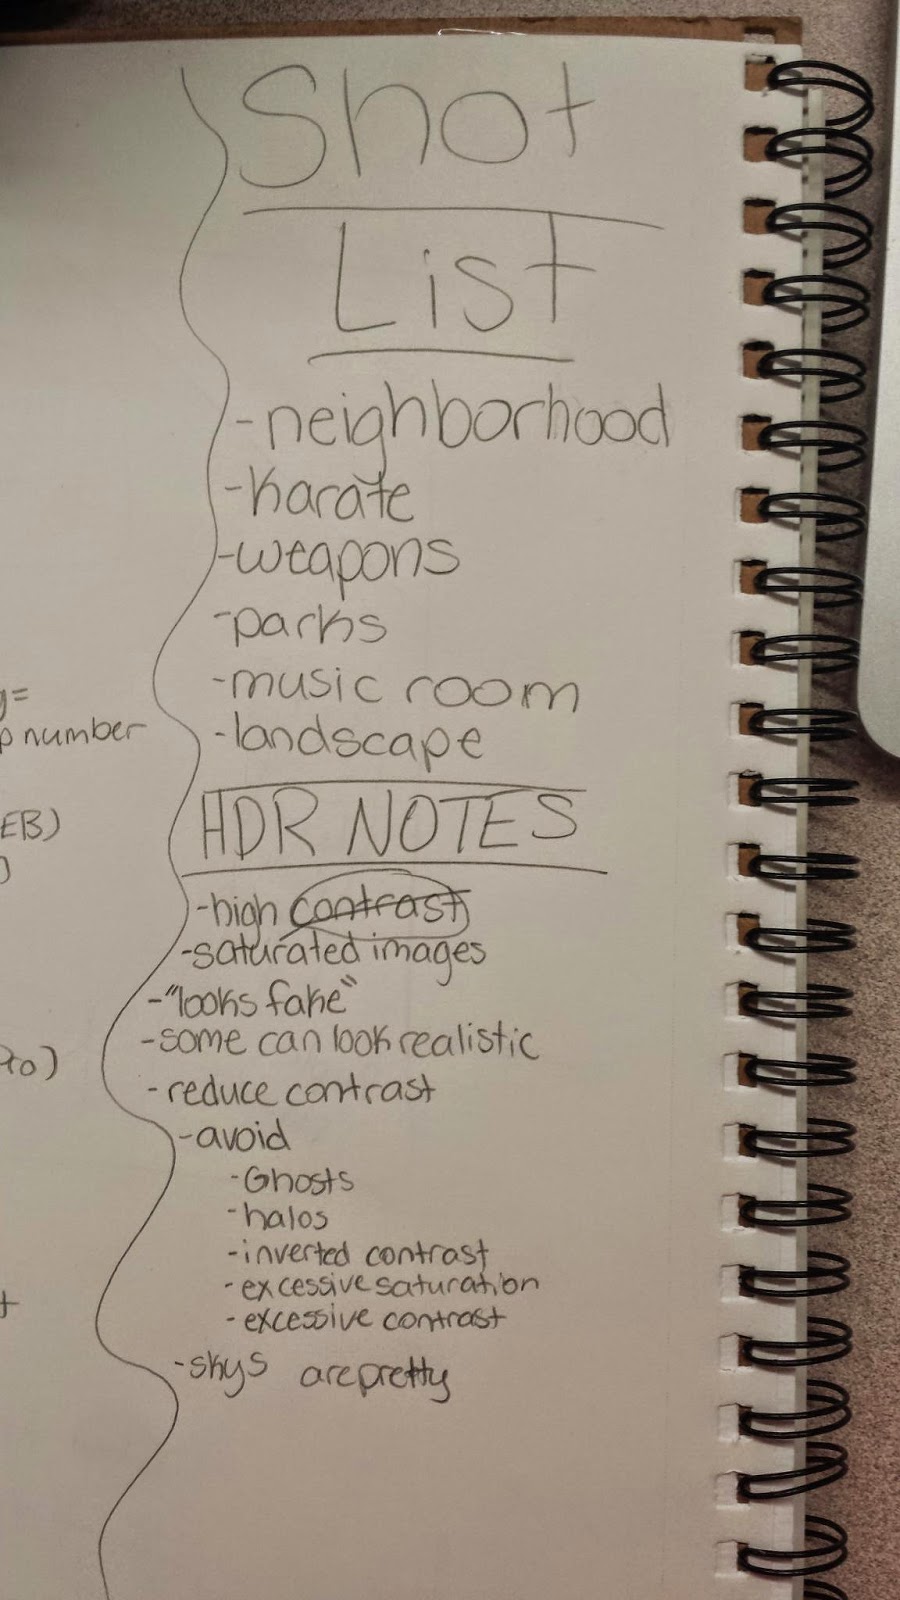 Shot
List
-neighborhood
-karate
-weapons
-parks
-music room
-landscape
HDR NOTES
-high contrast
-saturated images
-"looks fake"
-some can look realistic
-reduce contrast
-avoid
-Ghosts
-halos
-inverted contrast
-excessive saturation
-excessive contrast
-skys are pretty
number
EB)
to)